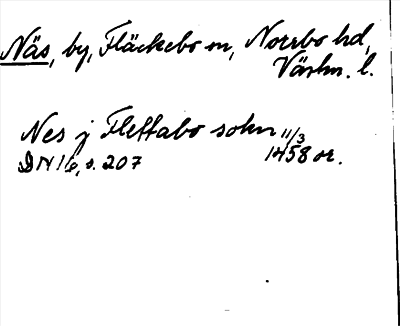 Näs, by, Fläckebo sn, Norrbo hd,
Västm. l.
Nes j Flettabo sokn 11/3
DN 16, s. 207 1458 or.